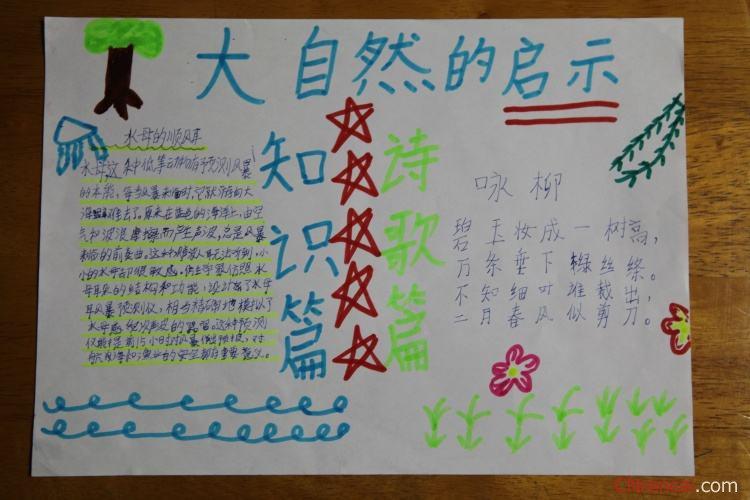 大自然的启示
水母的顺风耳
水母这种低等动物有预测风暴
的本能，每当风暴来临时，它就游向大
海避难去了。原来在蓝色的海洋上，由空
气和波浪摩擦而产生声波，总是风暴
来临的前奏曲。这种次声波人耳无法听到，小
小的水母却很敏感。仿生学家仿照水
母耳朵的结构和功能，设计了水母
耳风暴预测仪，相当精确地模拟了
水母感受次声波的器官。这种预测
仪能提前15小时对风暴作出预报，对
航海和渔业的安全都有重要意义。
知识篇
诗歌篇
咏柳
碧玉妆成一树高，
万条垂下绿丝绦。
不知细叶谁裁出，
二月春风似剪刀。